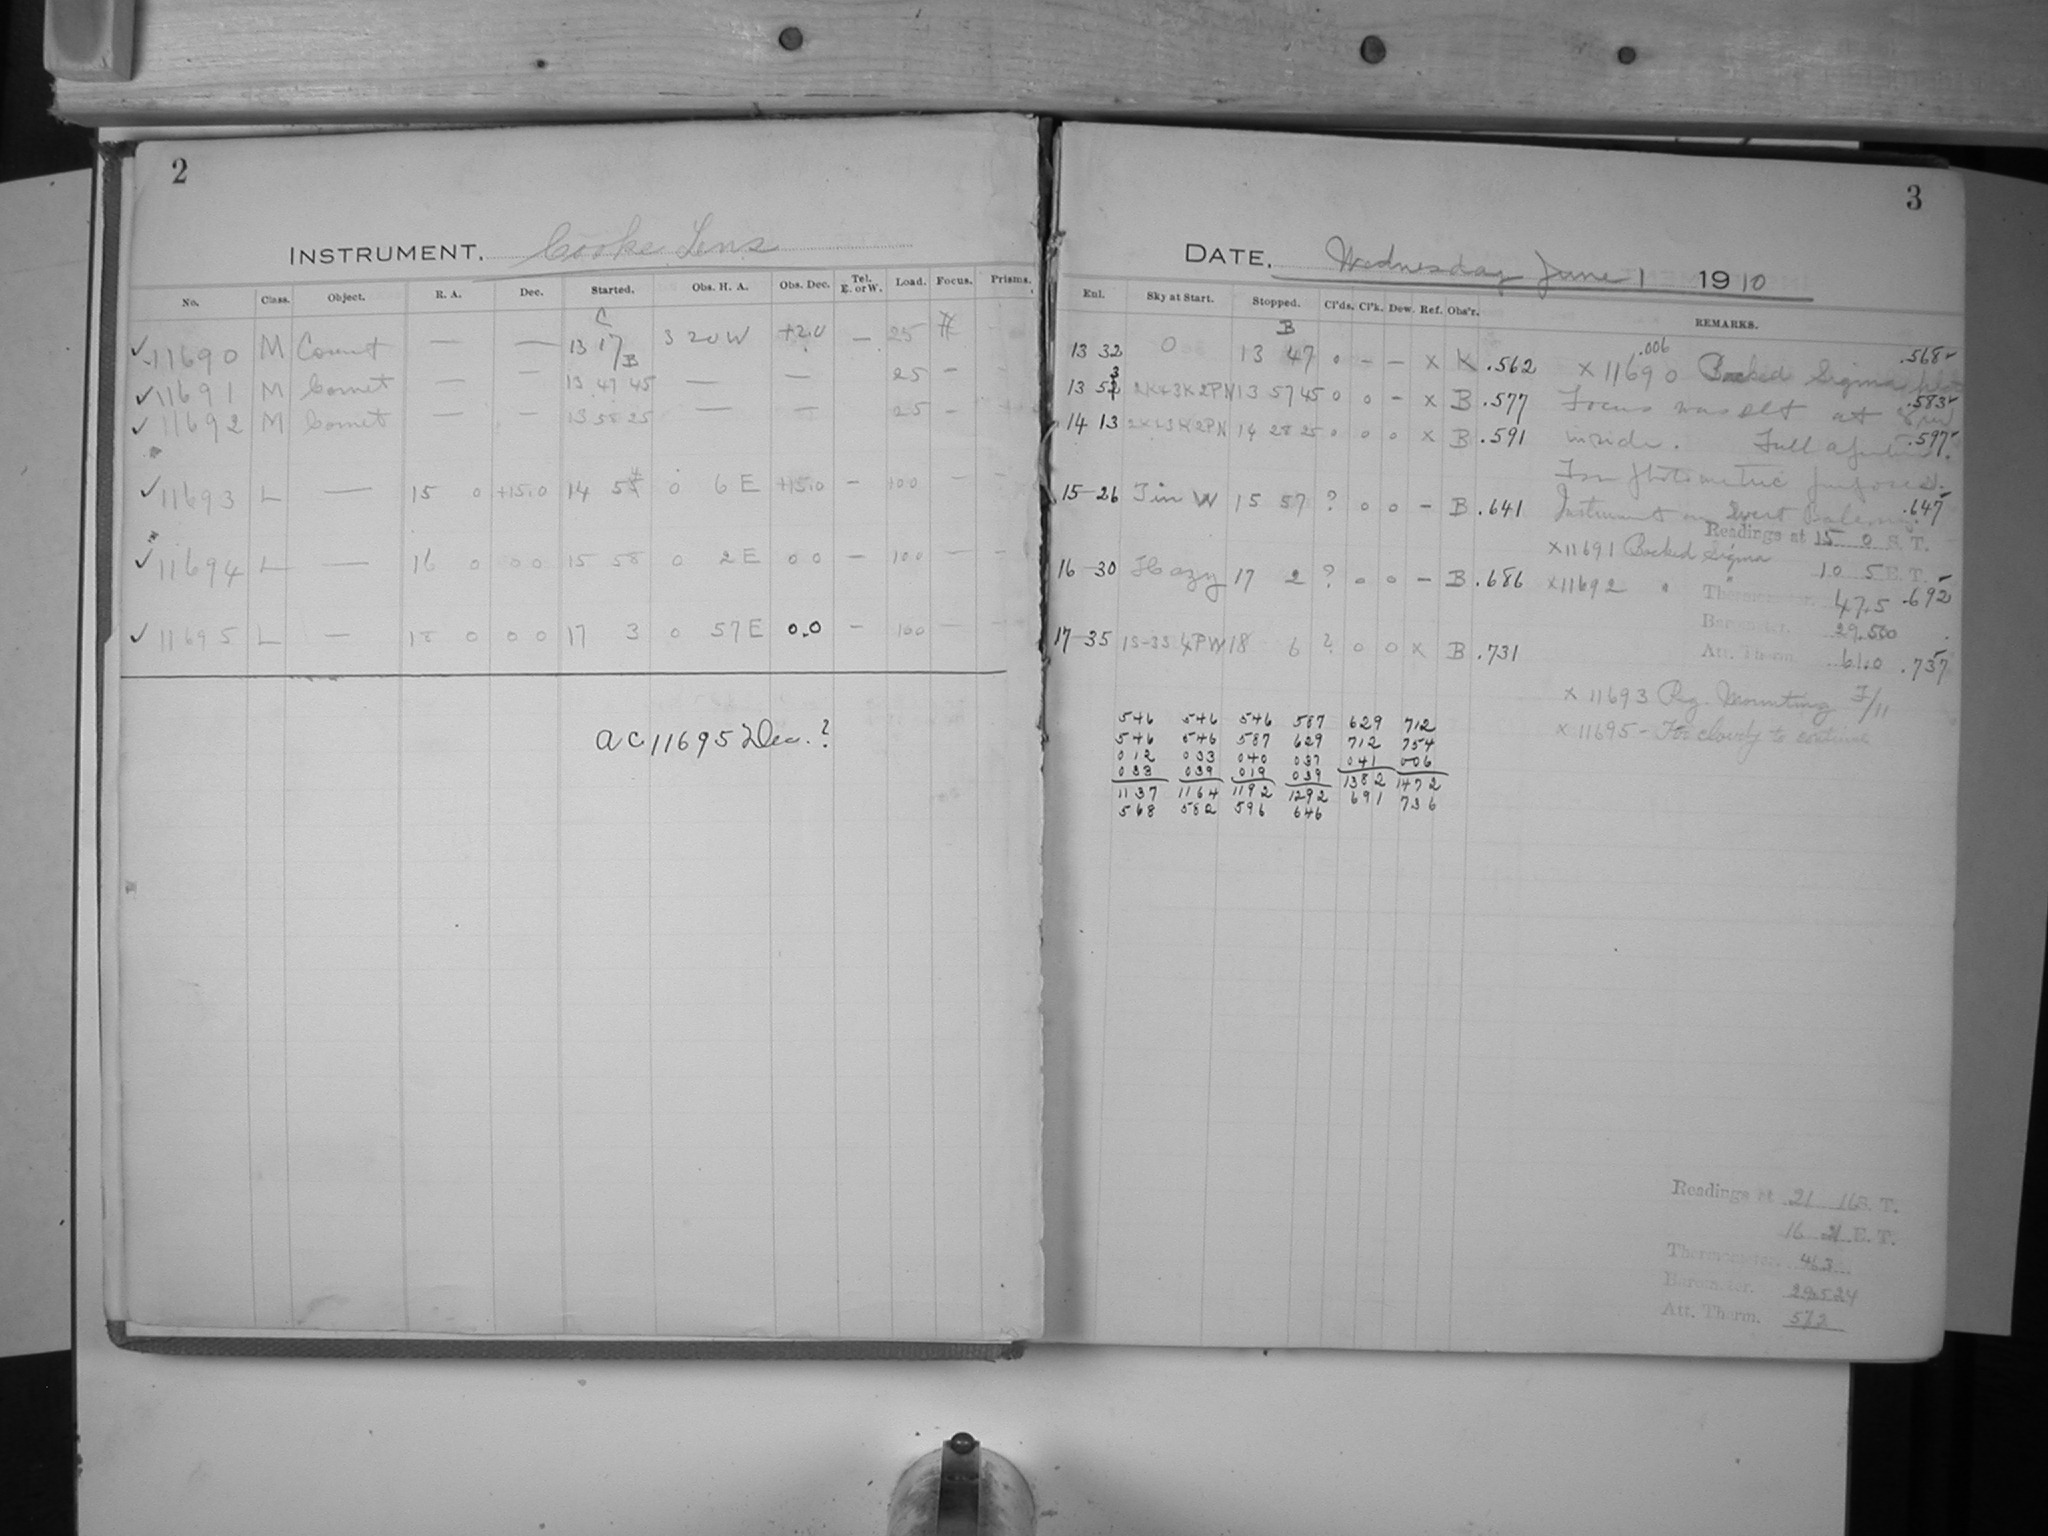 2
INSTRUMENT. Cooke Lens
No. Class. Object. R. A. Dec. Started. Obs. H. A. Obs. Dec. Tel. E. or W. Load. Focus. Prisms.
C
✓ 11690 M Comet — — 13 17 3 20 W +2.0 — 25
B
✓ 11691 M Comet — — 13 47 45 — — 25 —
✓ 11692 M Comet — — 13 58 25 — — 25 —
✓ 11693 L — 15 0 +15.0 14 54 0 6 E +15.0 — 100 — —
✓ 11694 L — 16 0 0 0 15 58 0 2 E 0 0 — 100 — —
✓ 11695 L — 18 0 0 0 17 3 0 57 E 0.0 — 100 — —
a c 11695 Dec. ?
3
DATE. Wednesday June 1 1910
Enl. Sky at Start. Stopped. Cl'ds. Cl'k. Dew. Ref. Obs'r. REMARKS.
B
13 32 0 13 47 0 — — x K .562
13 53 2K+3K2PN 13 57 45 0 0 — x B .577
14 13 2K+3K2PN 14 28 25 0 0 0 x B .591
15-26 Tin W 15 57 ? 0 0 — B .641
16-30 Hazy 17 2 ? 0 0 — B .686
17-35 1S-3S 4PW 18 6 ? 0 0 x B .731
.006 .568
x 11690 Backed Sigma
Focus was set at .583
inside. Full .597
For photometric purposes.
Instrument on West .647
Readings at 15 0 S. T.
x11691 Backed Sigma
10 5 E. T.
x11692 "
Thermometer. 47.5 .692
Barometer. 29.500
Att. Therm. 61.0 .737
x 11693 Reg. Mounting F/11
x 11695 - Too cloudy to continue
546 546 546 587 629 712
546 546 587 629 712 754
012 033 040 037 041 006
033 039 019 039 1382 1472
1137 1164 1192 1292 691 736
568 582 596 646
Readings at 21 16 S. T.
16 21 E. T.
Thermometer. 46.3
Barometer. 29.524
Att. Therm. 57.2